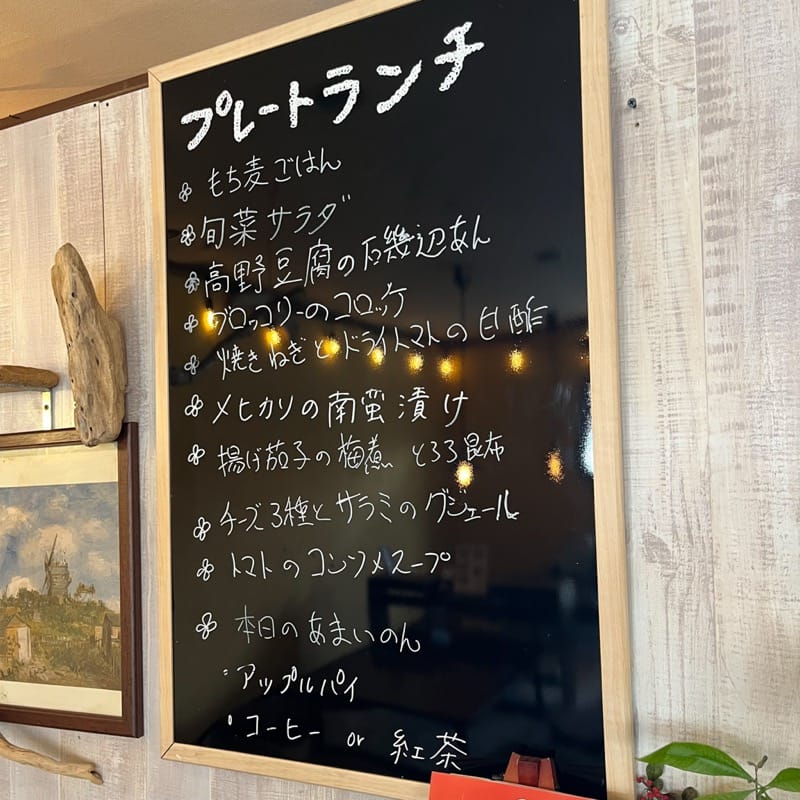 プレートランチ
もち麦ごはん
旬菜サラダ
高野豆腐の磯辺あん
ブロッコリーのコロッケ
焼きねぎとドライトマトの甘酢
メヒカリの南蛮漬け
揚げ茄子の梅煮 とろろ昆布
チーズ3種とサラミのグジェール
トマトのコンソメスープ
本日のあまいのん
アップルパイ
コーヒー or 紅茶